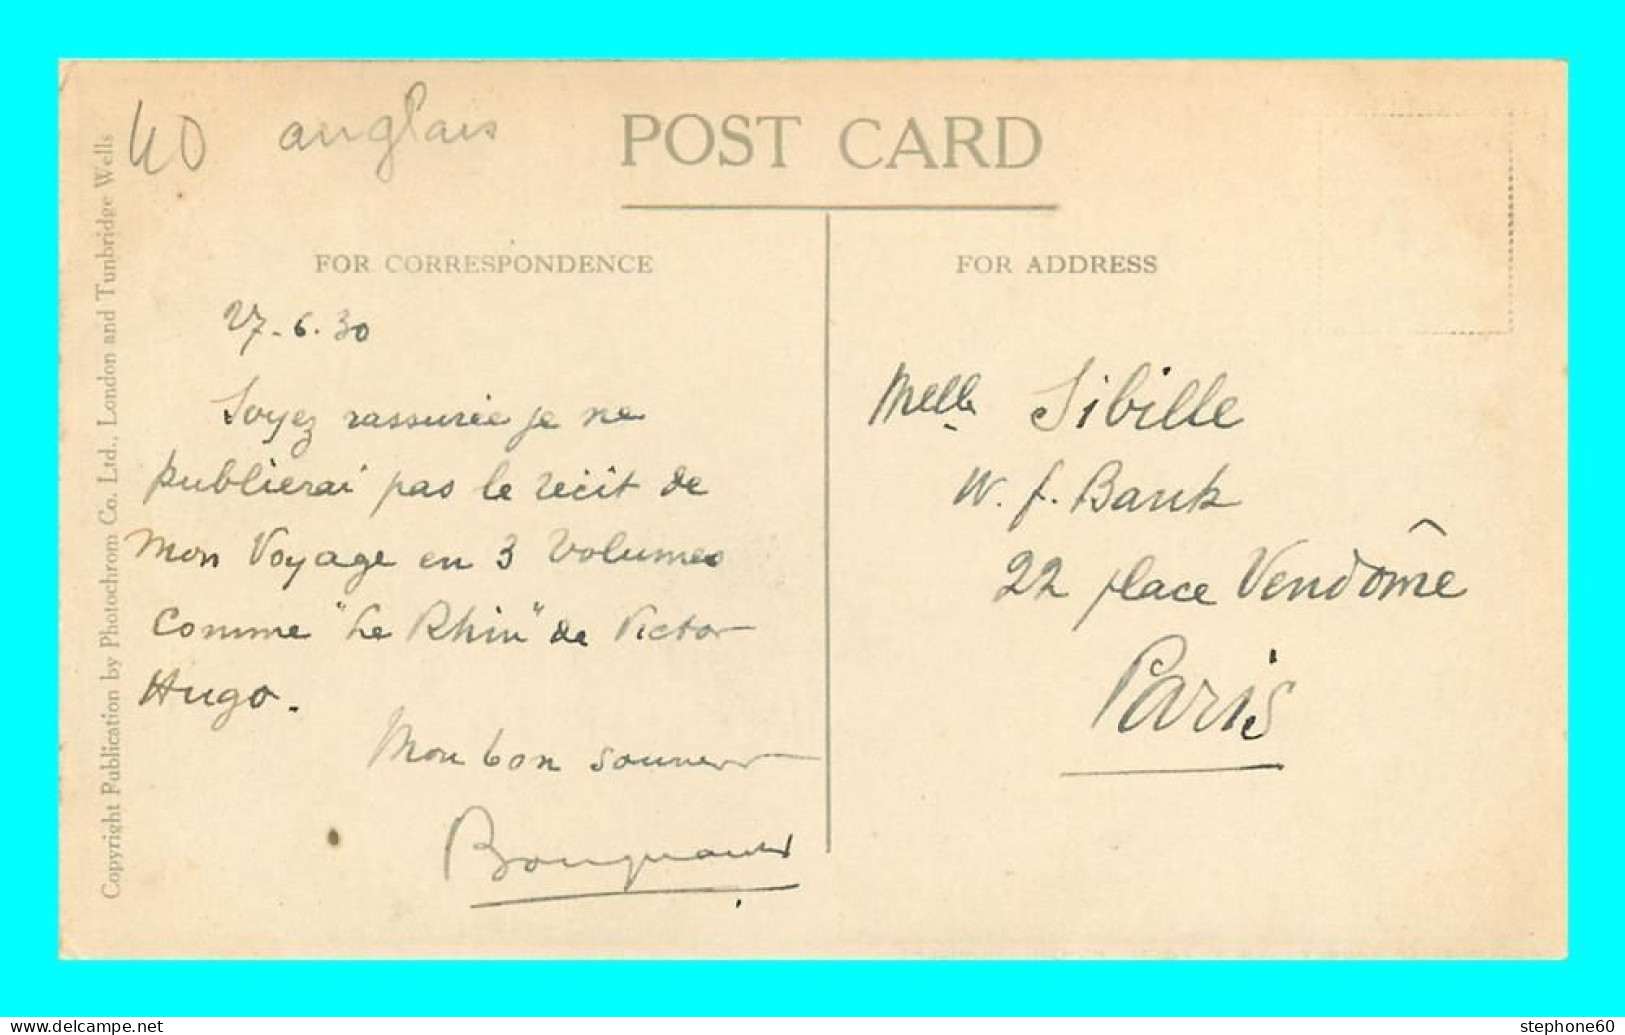 40 anglais
POST CARD
FOR CORRESPONDENCE
27-6.30
Soyez rassurée je ne
publierai pas le récit de
mon voyage en 3 volumes
comme "Le Rhin" de Victor
Hugo.
Mon bon souvenir
FOR ADDRESS
Melle Sibille
W. f. Bank
22 place Vendôme
Paris
Copyright Publication by Photochrom Co. Ltd., London and Tunbridge Wells
www.delcampe.net
stephone60